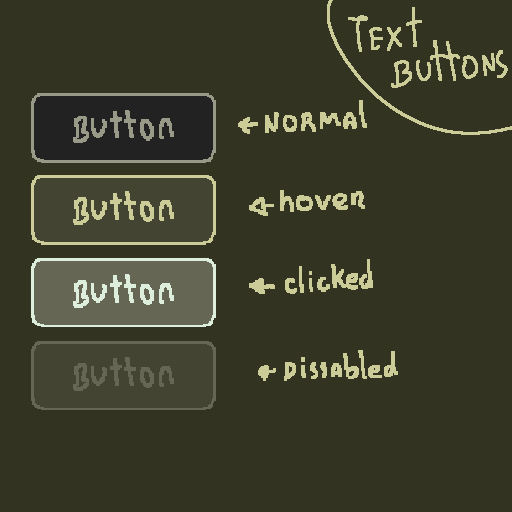 TExt
Buttons
Button
← NORMAl
Button
← hover
Button
← clicked
Button
← Dissabled